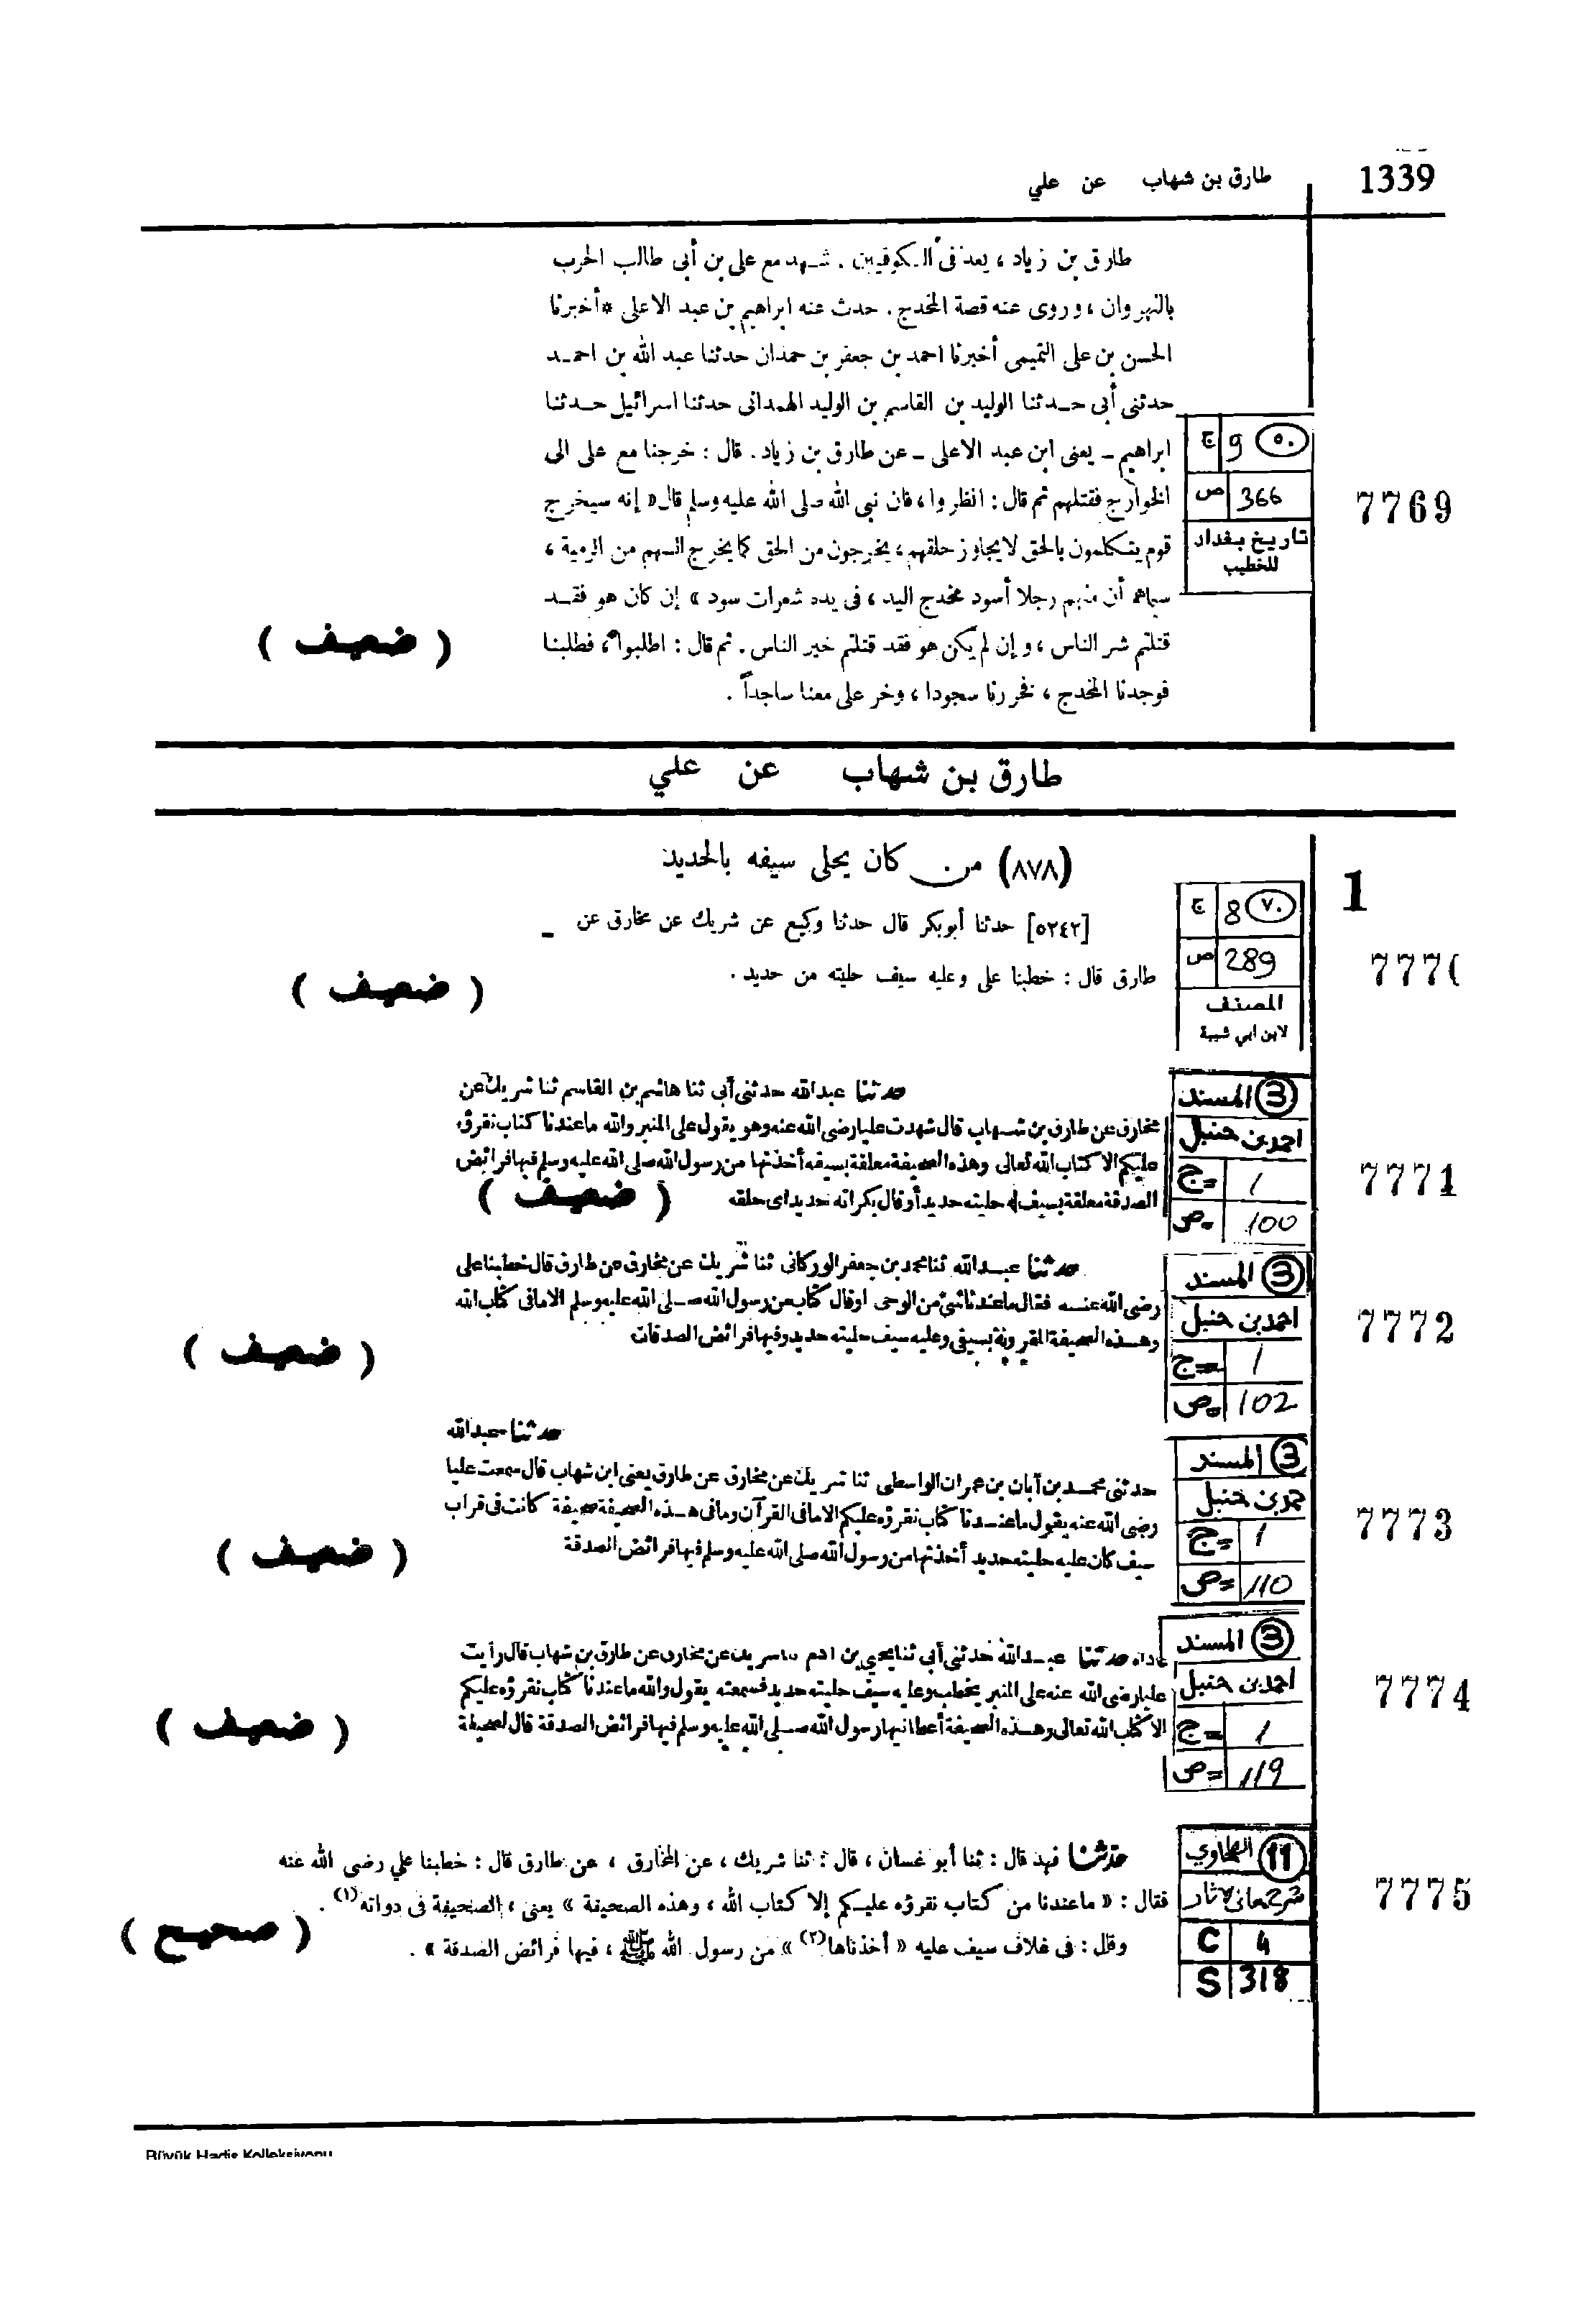 1339
طارق بن شهاب عن علي
طارق بن زياد ، يعد فى الكوفيين . شهد مع على بن أبى طالب الحرب
بالنهروان ، وروى عنه قصة المخدج . حدث عنه ابراهيم بن عبد الاعلى * أخبرنا
الحسن بن على التميمى أخبرنا احمد بن جعفر بن حمدان حدثنا عبد الله بن احمد
حدثنى أبى حدثنا الوليد بن القاسم بن الوليد الهمدانى حدثنا اسرائيل حدثنا
ابراهيم - يعنى ابن عبد الاعلى - عن طارق بن زياد . قال : خرجنا مع على الى
الخوارج فقتلهم ثم قال : انظروا ، فان نبى الله صلى الله عليه وسلم قال « إنه سيخرج
قوم يتكلمون بالحق لا يجاوز حلقهم ، يخرجون من الحق كما يخرج السهم من الرمية ،
سيماهم أن منهم رجلا أسود مخدج اليد ، فى يده شعرات سود » إن كان هو فقد
قتلتم شر الناس ، وإن لم يكن هو فقد قتلتم خير الناس . ثم قال : اطلبوا ، فطلبنا
فوجدنا المخدج ، فخررنا سجودا ، وخر على معنا ساجداً .
( ضعيف )
٥٠ 9 ج
366 ص
تاريخ بغداد
للخطيب
7769
طارق بن شهاب عن علي
1
(٨٧٨) من كان يحلى سيفه بالحديد
[٥٢٤٢] حدثنا أبو بكر قال حدثنا وكيع عن شريك عن مخارق عن
طارق قال : خطبنا على وعليه سيف حليته من حديد .
( ضعيف )
٧٠ 8 ج
289 ص
المصنف
لابن ابي شيبة
777
حدثنا عبدالله حدثنى أبى ثنا هاشم بن القاسم ثنا شريك عن
مخارق عن طارق بن شهاب قال شهدت عليا رضى الله عنه وهو يقول على المنبر والله ما عندنا كتاب نقرؤه
عليكم الا كتاب الله تعالى وهذه الصحيفة معلقة بسيفه أخذتها من رسول الله صلى الله عليه وسلم فيها فرائض
الصدقة معلقة بسيف له حليته حديد أو قال بكراته حديد اى حلقه
( ضعيف )
3 المسند
احمد بن حنبل
ج= 1
ص= 100
7771
حدثنا عبدالله ثنا محمد بن جعفر الوركانى ثنا شريك عن مخارق عن طارق قال خطبنا على
رضى الله عنه فقال ما عندنا شئ من الوحى او قال كتاب من رسول الله صلى الله عليه وسلم الا ما فى كتاب الله
وهذه الصحيفة المقرونة بسيفى وعليه سيف حليته حديد وفيها فرائض الصدقات
( ضعيف )
3 المسند
احمد بن حنبل
ج= 1
ص= 102
7772
حدثنا عبدالله
حدثنى محمد بن أبان بن عمران الواسطى ثنا شريك عن مخارق عن طارق يعنى ابن شهاب قال سمعت عليا
رضى الله عنه يقول ما عندنا كتاب نقرؤه عليكم الا ما فى القرآن وما فى هذه الصحيفة صحيفة كانت فى قراب
سيف كان عليه حليته حديد أخذتها من رسول الله صلى الله عليه وسلم فيها فرائض الصدقة
( ضعيف )
3 المسند
حمد بن حنبل
ج= 1
ص= 110
7773
حدثنا عبدالله حدثنى أبى ثنا يحيى بن ادم شريك عن مخارق عن طارق بن شهاب قال رأيت
عليا رضى الله عنه على المنبر يخطب وعليه سيف حليته حديد فسمعته يقول والله ما عندنا كتاب نقرؤه عليكم
الا كتاب الله تعالى وهذه الصحيفة أعطانيها رسول الله صلى الله عليه وسلم فيها فرائض الصدقة قال لصحيفة
( ضعيف )
3 المسند
احمد بن حنبل
ج= 1
ص= 119
7774
حدثنا فهد قال : ثنا أبو غسان ، قال : ثنا شريك ، عن المخارق ، عن طارق قال : خطبنا علي رضى الله عنه
فقال : « ما عندنا من كتاب نقرؤه عليكم إلا كتاب الله ، وهذه الصحيفة » يعنى ، الصحيفة فى دواته (١) .
وقال : فى غلاف سيف عليه « أخذناها (٢) » من رسول الله ﷺ ، فيها فرائض الصدقة » .
( صحيح )
11 الطحاوي
شرح معانى الاثار
C 4
S 318
7775
Büyük Hadis Kolleksiyonu